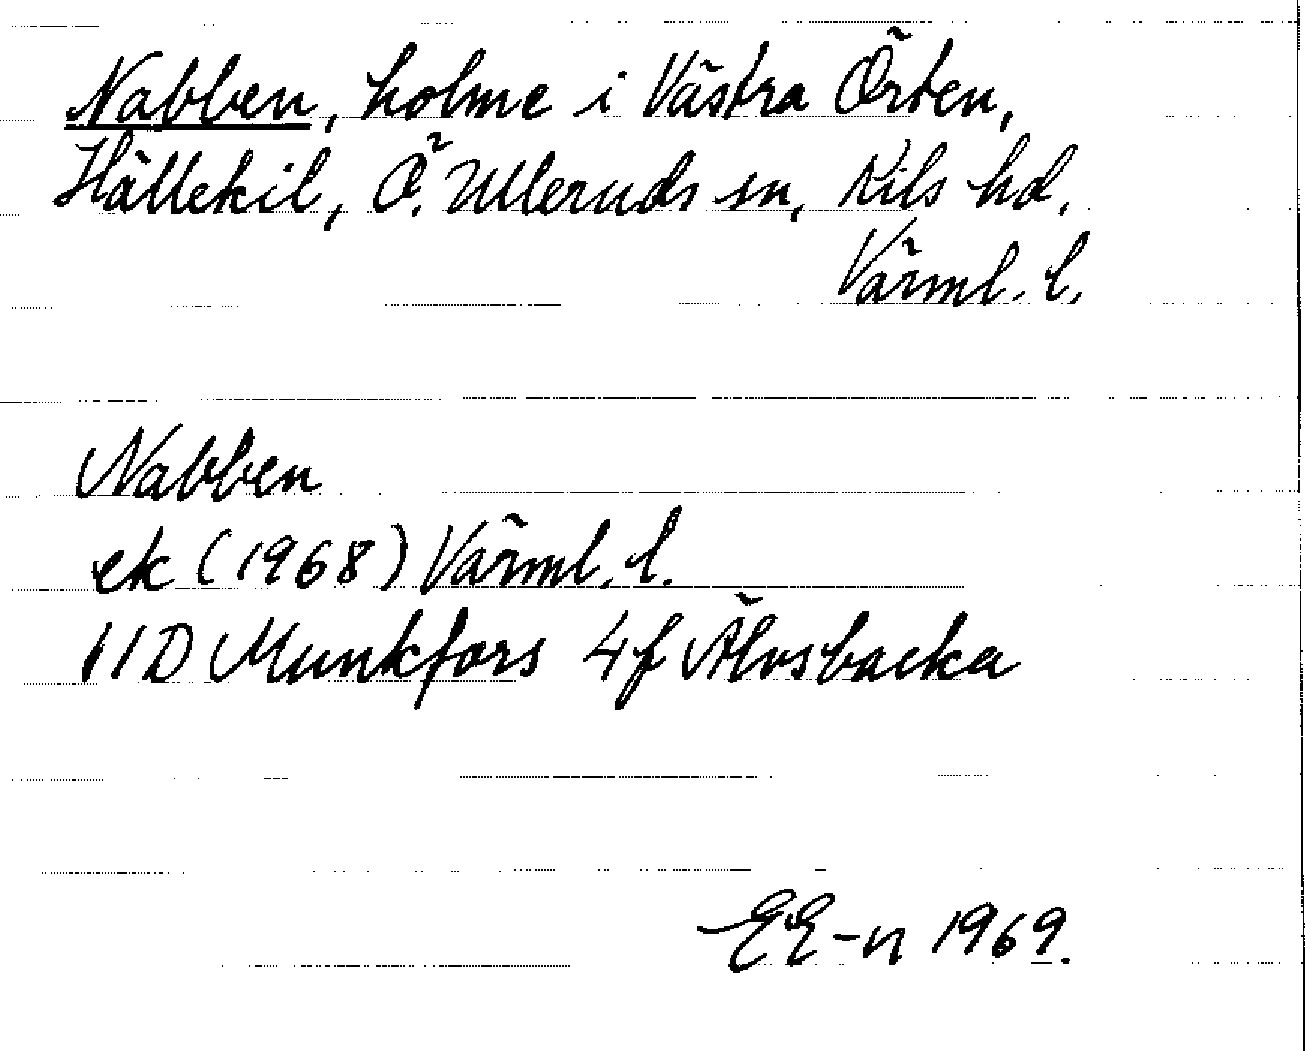 Nabben, holme i Västra Örten,
Hällekil, Ö. Ulleruds sn, Kils hd,
Värml. l.
Nabben
ek (1968) Värml. l.
11D Munkfors 4f Älvsbacka
EE-n 1969.